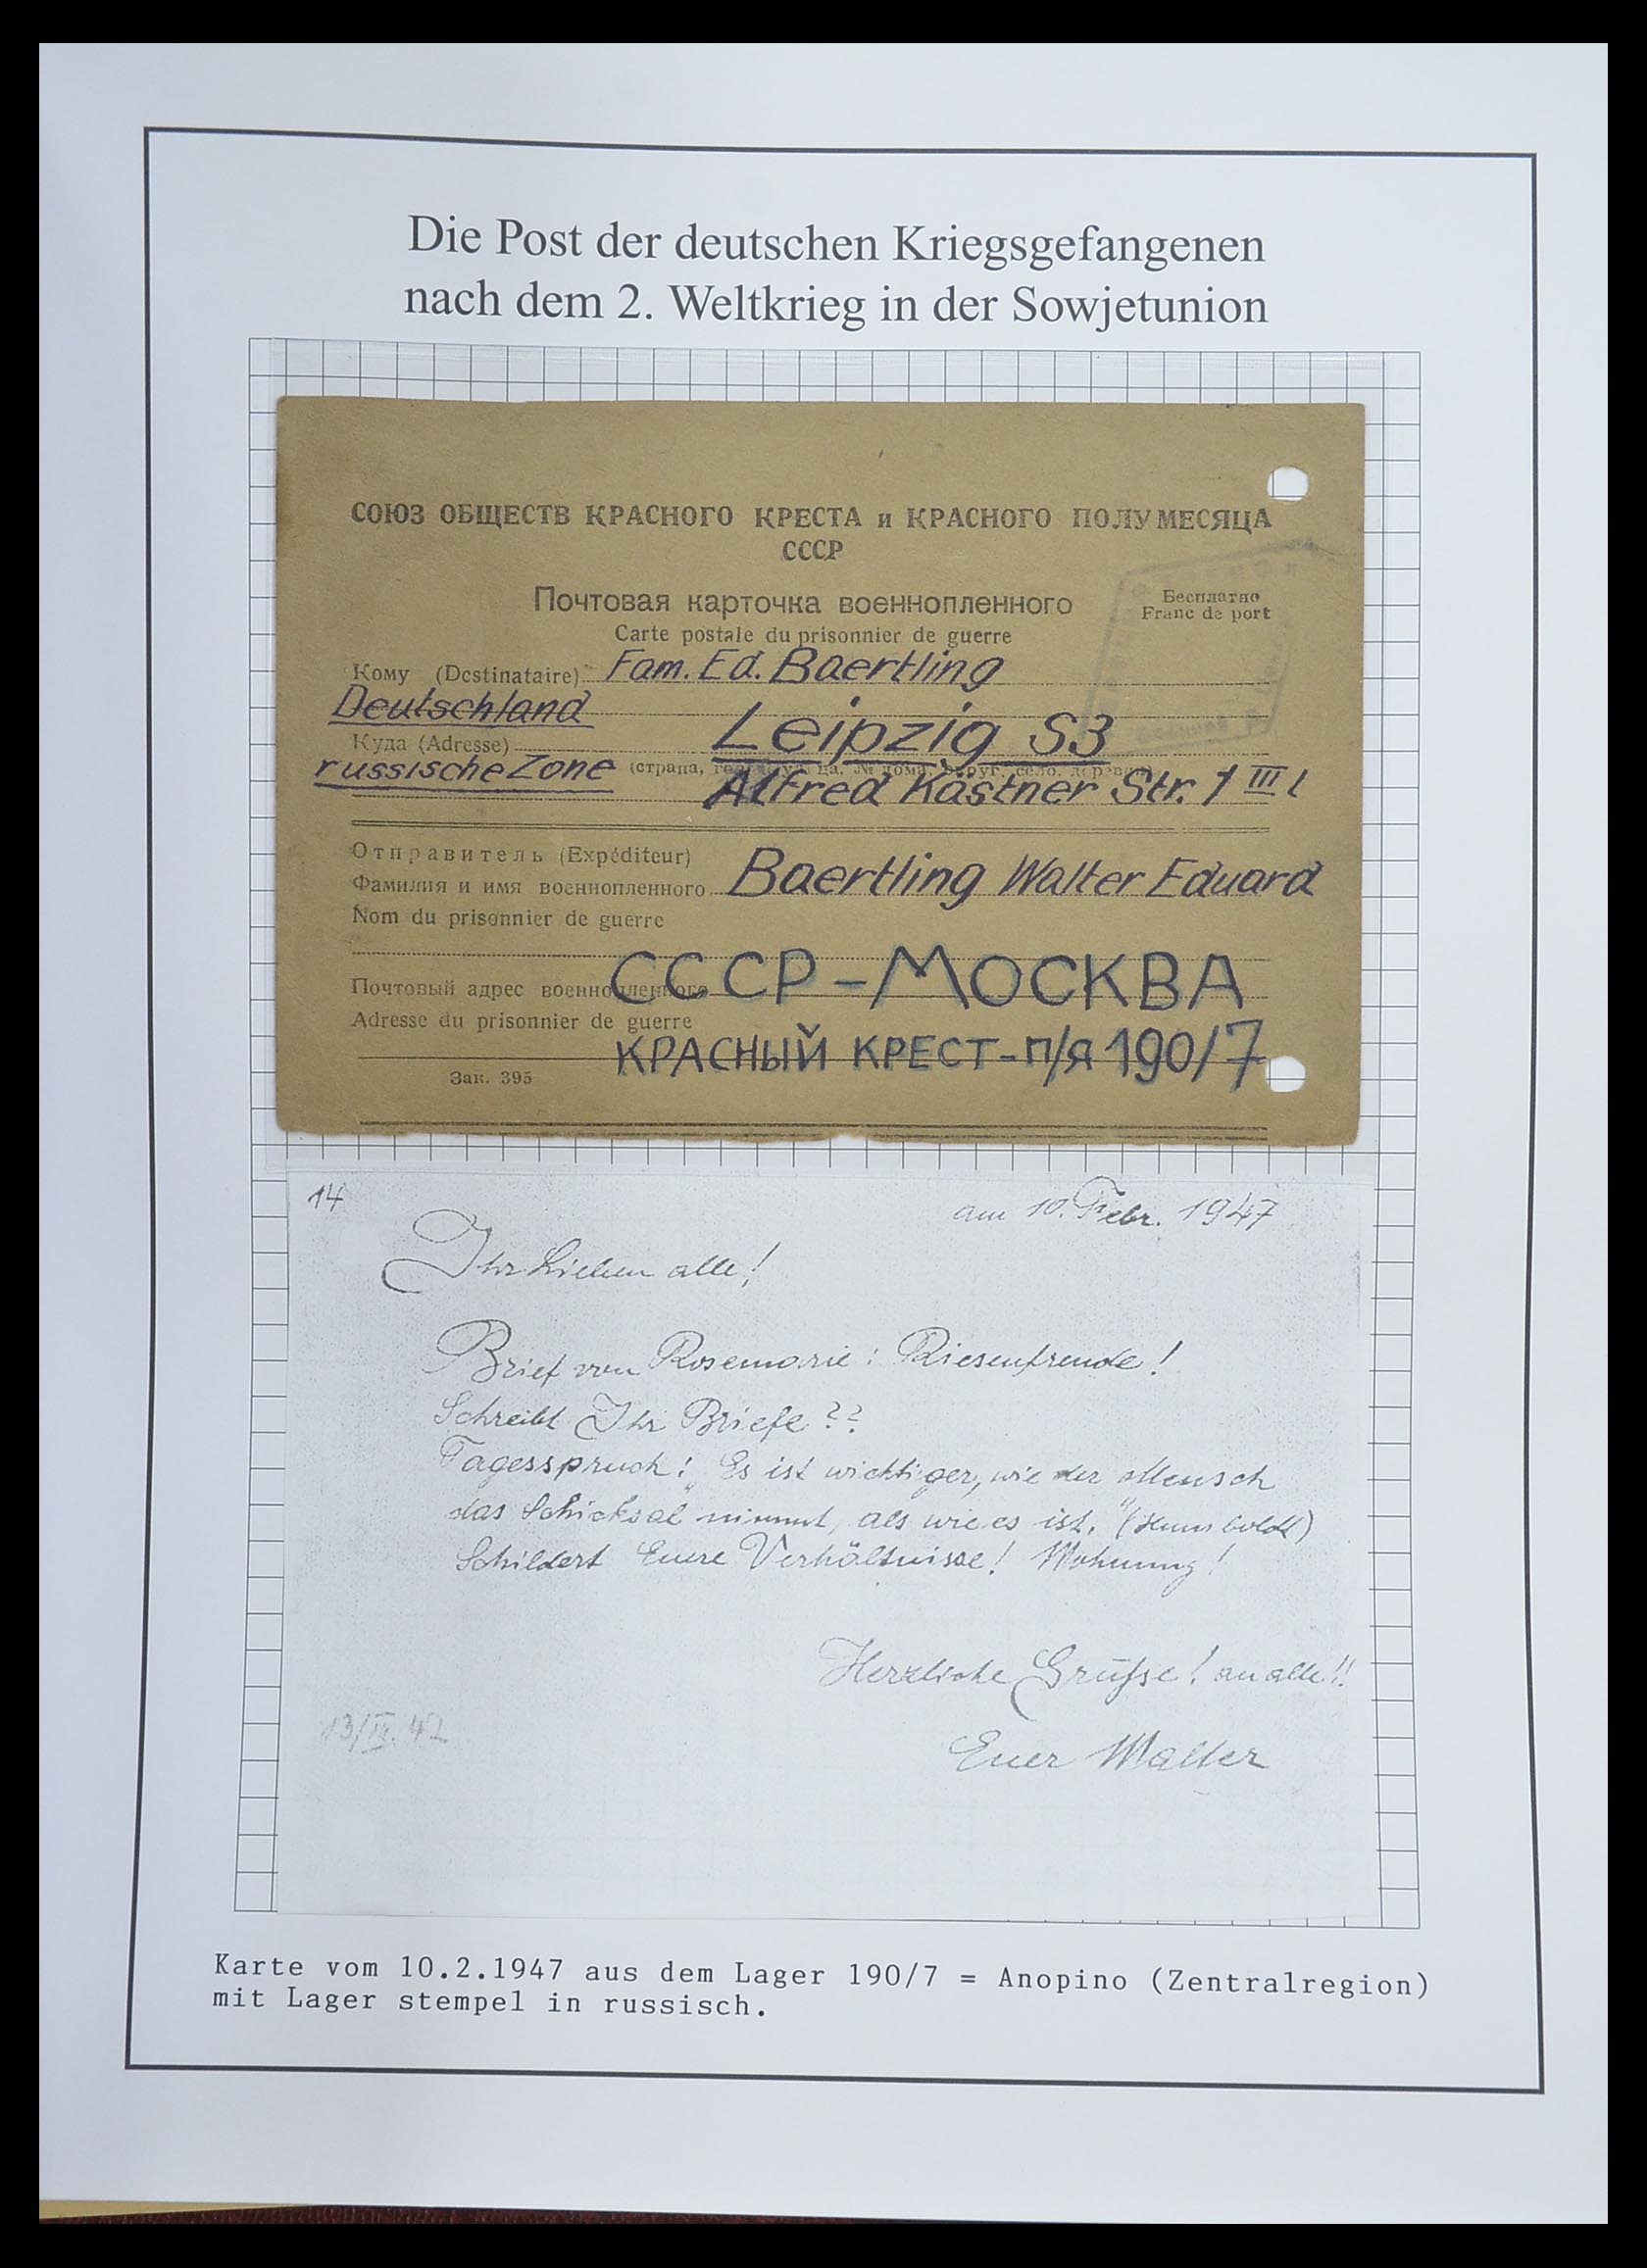 Die Post der deutschen Kriegsgefangenen
nach dem 2. Weltkrieg in der Sowjetunion
СОЮЗ ОБЩЕСТВ КРАСНОГО КРЕСТА и КРАСНОГО ПОЛУМЕСЯЦА
СССР
Почтовая карточка военнопленного
Бесплатно
Carte postale du prisonnier de guerre
Franc de port
Кому (Destinataire) Fam. Ed. Baertling
Deutschland
Leipzig S3
Куда (Adresse)
russische Zone
(страна, город, улица, № дома, округ, село, деревня)
Alfred Kästner Str. 1 III l
Отправитель (Expéditeur)
Фамилия и имя военнопленного Baertling Walter Eduard
Nom du prisonnier de guerre
СССР-МОСКВА
Почтовый адрес военнопленного
Adresse du prisonnier de guerre
КРАСНЫЙ КРЕСТ-П/Я 190/7
Зак. 395
14
am 10. Febr. 1947
Ihr Lieben alle!
Brief von Rosemarie: Riesenfreude!
Schreibt Ihr Briefe??
Tagesspruch: „Es ist wichtiger, wie der Mensch
das Schicksal nimmt, als wie es ist." (Humboldt)
Schildert Euere Verhältnisse! Wohnung!
Herzliche Grüße! an alle!!
13/IV.47
Euer Walter
Karte vom 10.2.1947 aus dem Lager 190/7 = Anopino (Zentralregion)
mit Lager stempel in russisch.